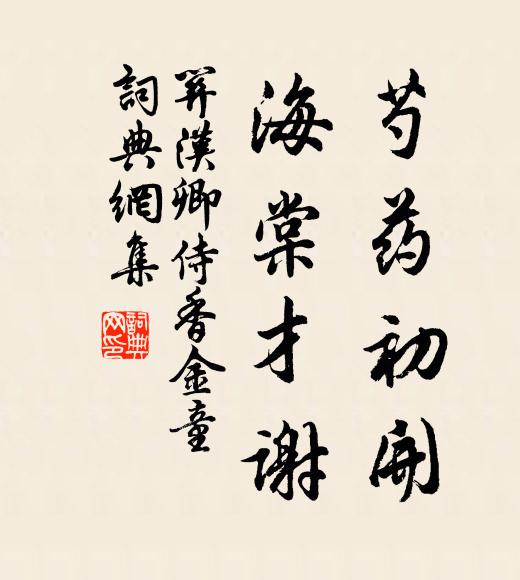 芍药初開
海棠才谢
關漢卿侍香金童
詞典網集
詞典網印